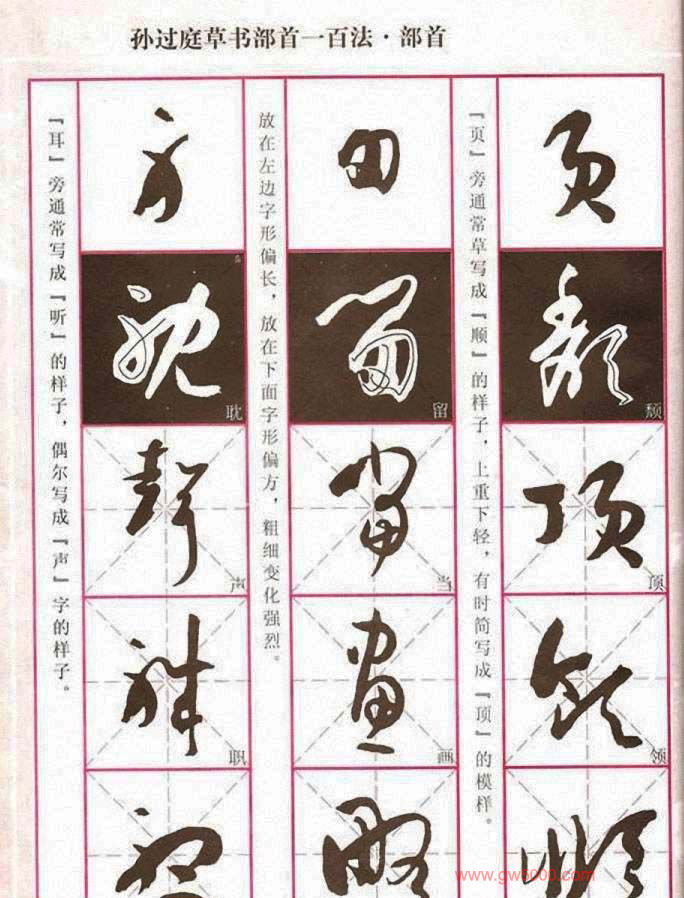 孙过庭草书部首一百法·部首
颓
顶
领
『页』旁通常草写成『顺』的样子，上重下轻，有时简写成『顶』的模样。
留
当
画
放在左边字形偏长，放在下面字形偏方，粗细变化强烈。
耽
声
职
『耳』旁通常写成『听』的样子，偶尔写成『声』字的样子。